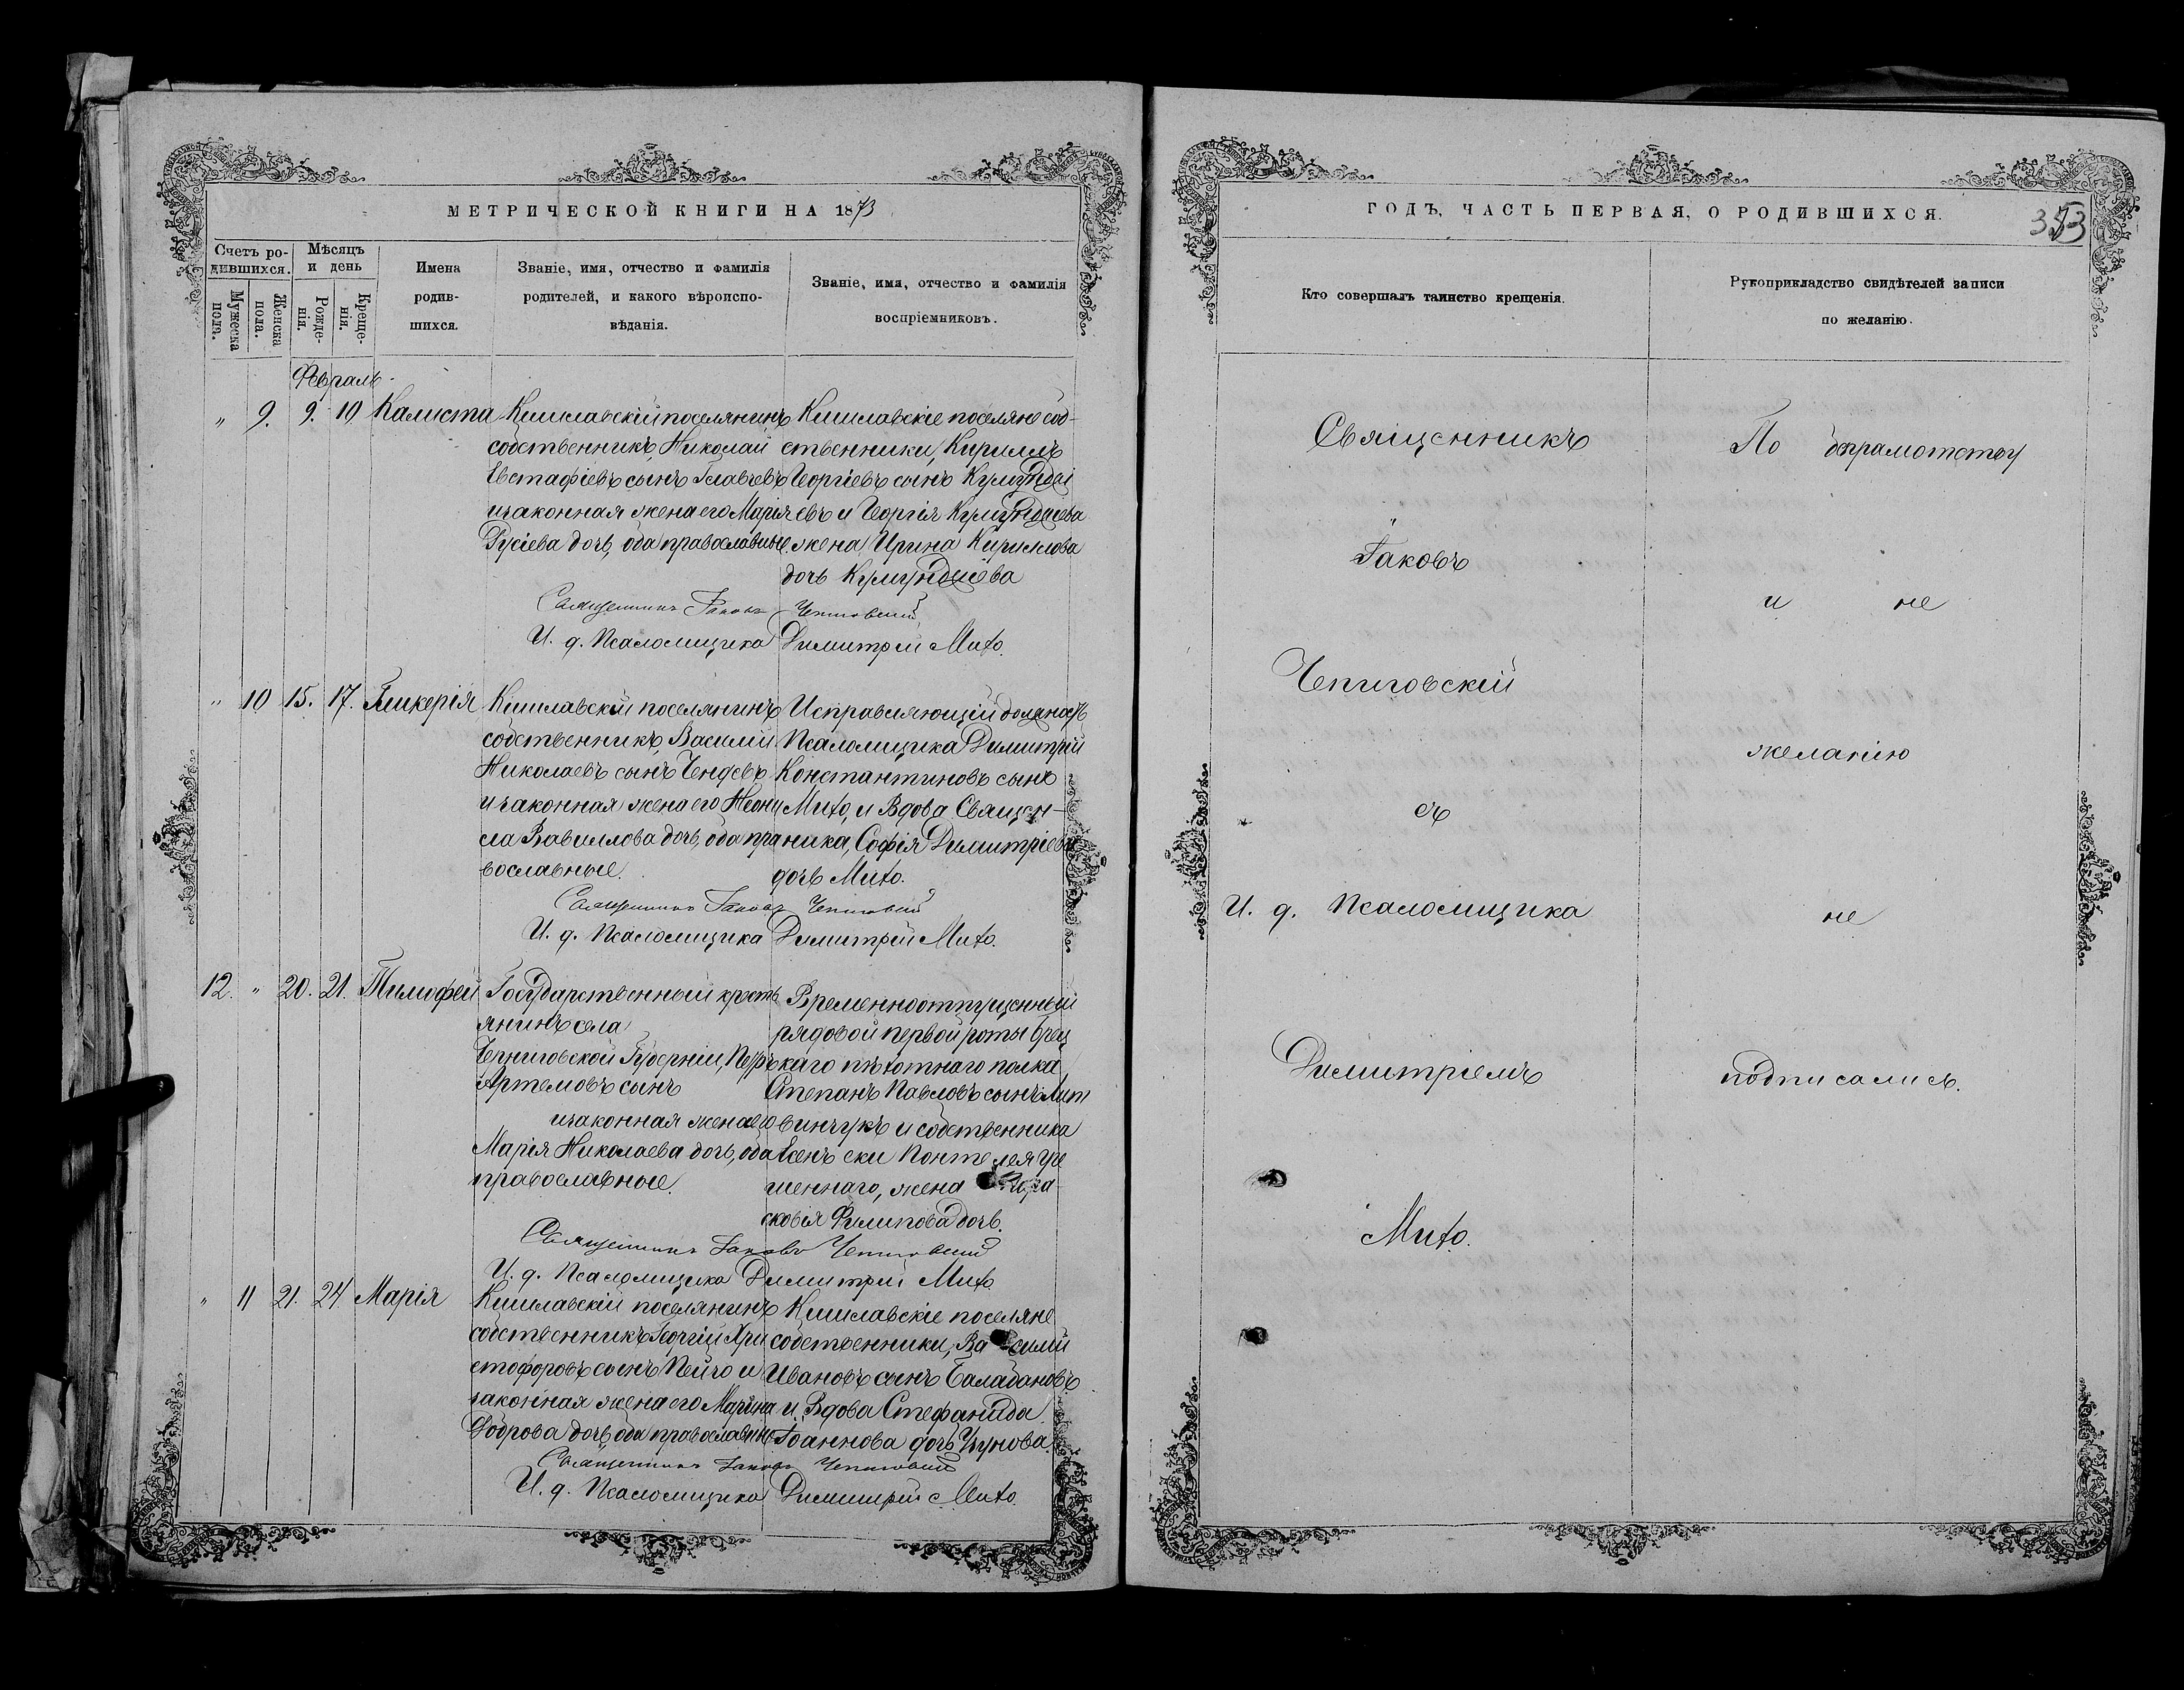 МЕТРИЧЕСКОЙ КНИГИ НА 1873
Счетъ ро-
дившихся.
Мѣсяцъ
и день
Мужеска
пола.
Женска
пола.
Рожде-
нія.
Креще-
нія.
Имена
родив-
шихся.
Званіе, имя, отчество и фамилія
родителей, и какого вѣроиспо-
вѣданія.
Званіе, имя, отчество и фамилія
воспріемниковъ.
Февраль
" 9. 9. 10 Калиста
Кишлавскій поселянинъ
собственникъ, Николай
Евстафіевъ сынъ Главчевъ
и законная жена его Марія
Гусіева дочь, оба православные.
Кишлавскіе поселяне соб-
ственники, Кириллъ
Георгіевъ сынъ Кумунджі
евъ и Георгія Кумунджіева
жена Ирина Кириллова
дочь Кумунджіева
Священникъ Іаковъ Чепиговскій
И. д. Псаломщика Димитрій Мито.
" 10 15. 17. Гликерія
Кишлавскій поселянинъ
собственникъ, Василій
Николаевъ сынъ Ченғевъ
и законная жена его Неони
ла Вавиллова дочь, оба пра
вославные.
Исправляющій должность
Псаломщика Димитрій
Константиновъ сынъ
Мито, и Вдова Священ-
ника, Софія Димитріева
дочь Мито.
Священникъ Іаковъ Чепиговскій
И. д. Псаломщика Димитрій Мито.
12. " 20. 21. Тимофей
Государственный кресть
янинъ села
Черниговской Губерніи, Петръ
Артемовъ сынъ
и законная жена его
Марія Николаева дочь, оба
православные.
Временноотпущенный
рядовой первой роты Брец
каго пѣхотнаго полка
Степанъ Павловъ сынъ Лит
винчукъ и собственника
жена
сковія Филипова дочь.
Священникъ Іаковъ Чепиговскій
И. д. Псаломщика Димитрій Мито
" 11 21. 24 Марія
Кишлавскій поселянинъ
собственникъ Георгій Хри
стофоровъ сынъ Пейчо и
законная жена его Марина
Тодрова дочь, оба православные
Кишлавскіе поселяне
собственники, Василій
Ивановъ сынъ Баладановъ
и Вдова Стефанида
Іоаннова дочь Узунова.
Священникъ Іаковъ Чепиговскій
И. д. Псаломщика Димитрій Мито.
ГОДЪ, ЧАСТЬ ПЕРВАЯ, О РОДИВШИХСЯ.
353
Кто совершалъ таинство крещенія.
Рукоприкладство свидѣтелей записи
по желанію.
Священникъ
Іаковъ
Чепиговскій
съ
И. д. Псаломщика
Димитріемъ
Мито.
По
и не
желанію
не
подписались.